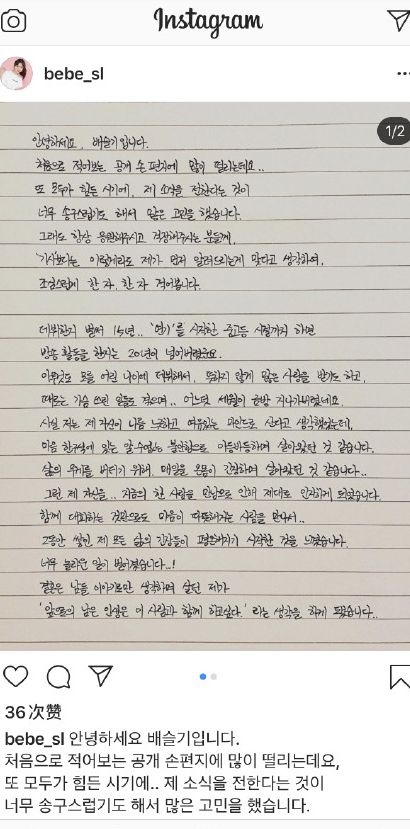 Instagram
bebe_sl
1/2
안녕하세요, 배슬기입니다.
처음으로 적어보는 공개 손 편지에 많이 떨리는데요..
또 모두가 힘든 시기에, 제 소식을 전한다는 것이
너무 송구스럽기도 해서 많은 고민을 했습니다.
그래도 항상 응원해주시고 걱정해주시는 분들께,
'기사'보다는 이렇게라도 제가 먼저 알려드리는게 맞다고 생각하여,
조심스럽게 한 자, 한 자 적어봅니다.
데뷔한지 벌써 15년.. '연기'를 시작한 중고등 시절까지 하면
방송 활동을 한지는 20년이 넘어버렸군요.
아무것도 모를 어린 나이에 데뷔해서, 뜻하지 않게 많은 사랑을 받기도 하고,
때로는 가슴 쓰린 일들도 겪으며.. 어느덧 세월이 훌쩍 지나가버렸네요.
사실 저는 제 자신이 나름 느긋하고 여유있는 마인드로 산다고 생각했었는데,
마음 한구석에 있는 알 수 없는 불안함으로 아등바등하며 살아왔던 것 같습니다.
삶의 무게를 버티기 위해, 매일을 온몸이 긴장하며 살아왔던 것 같습니다..
그런 제 자신을.. 지금의 한 사람을 만남으로 인해 제대로 인지하게 되었습니다.
함께 대화하는 것만으로도 마음이 따뜻해지는 사람을 만나서..
그동안 쌓인 제 모든 삶의 긴장들이 평온해지기 시작한 것을 느꼈습니다.
너무 놀라운 일이 벌어졌습니다..!
결혼은 남들 이야기로만 생각하며 살던 제가
'앞으로의 남은 인생은 이 사람과 함께 하고싶다.' 라는 생각을 하게 됐습니다..
36 次赞
bebe_sl 안녕하세요 배슬기입니다.
처음으로 적어보는 공개 손편지에 많이 떨리는데요,
또 모두가 힘든 시기에.. 제 소식을 전한다는 것이
너무 송구스럽기도 해서 많은 고민을 했습니다.